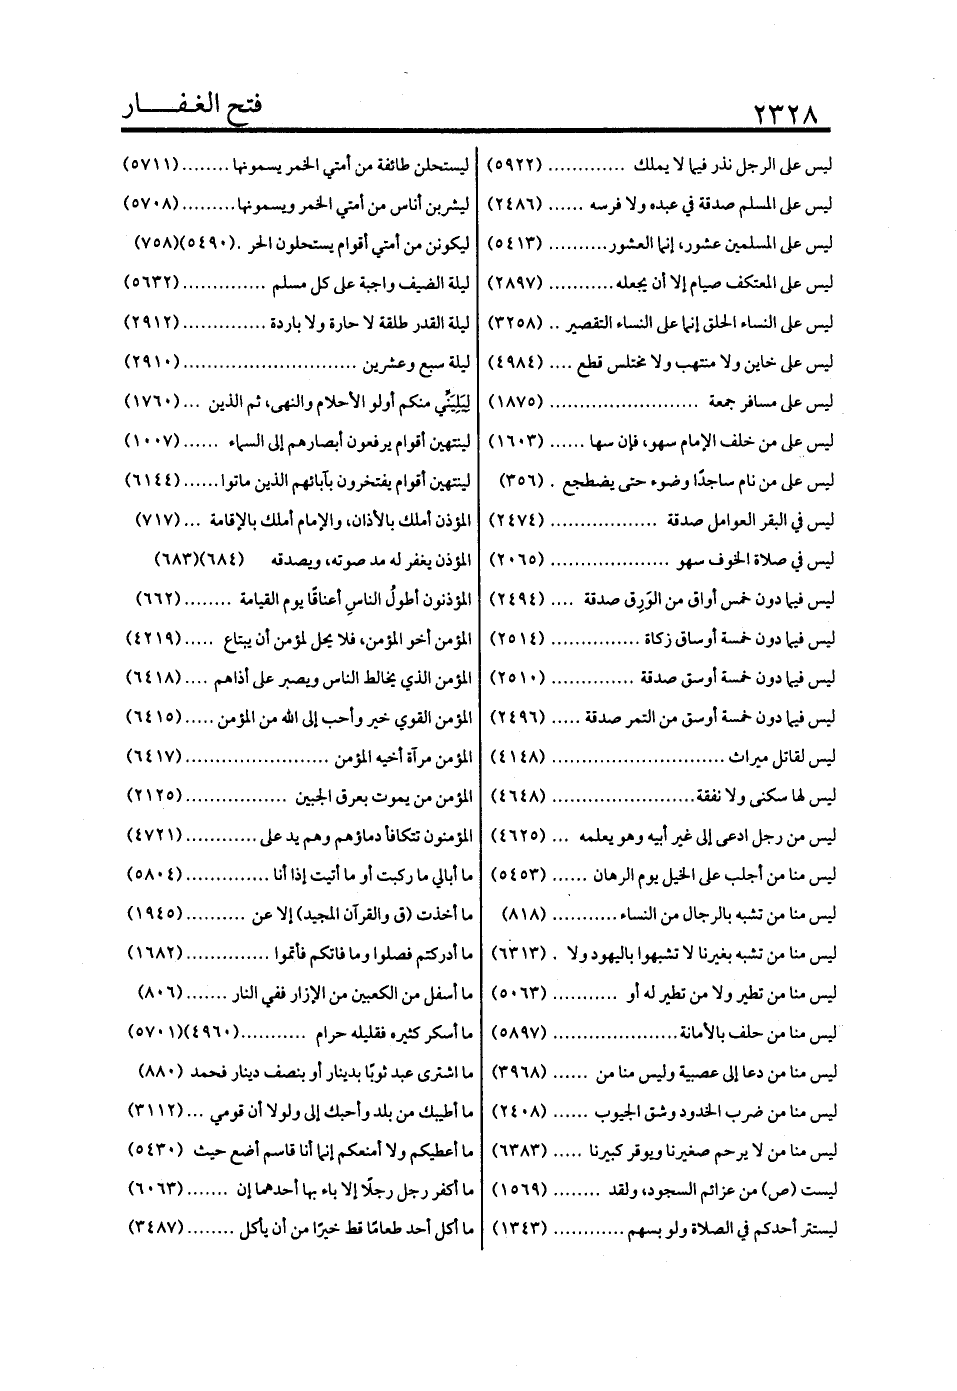 ٢٣٢٨
فتح الغفـــار
ليس على الرجل نذر فيما لا يملك ............. (٥٩٢٢)
ليس على المسلم صدقة في عبده ولا فرسه ...... (٢٤٨٦)
ليس على المسلمين عشور، إنما العشور.......... (٥٤١٣)
ليس على المعتكف صيام إلا أن يجعله........... (٢٨٩٧)
ليس على النساء الحلق إنما على النساء التقصير .. (٣٢٥٨)
ليس على خاين ولا منتهب ولا مختلس قطع .... (٤٩٨٤)
ليس على مسافر جمعة ......................... (١٨٧٥)
ليس على من خلف الإمام سهو، فإن سها ...... (١٦٠٣)
ليس على من نام ساجدًا وضوء حتى يضطجع . (٣٥٦)
ليس في البقر العوامل صدقة .................. (٢٤٧٤)
ليس في صلاة الخوف سهو .................... (٢٠٦٥)
ليس فيما دون خمس أواق من الوَرِق صدقة .... (٢٤٩٤)
ليس فيما دون خمسة أوساق زكاة ............... (٢٥١٤)
ليس فيما دون خمسة أوسق صدقة .............. (٢٥١٠)
ليس فيما دون خمسة أوسق من التمر صدقة ..... (٢٤٩٦)
ليس لقاتل ميراث ............................. (٤١٤٨)
ليس لها سكنى ولا نفقة ........................ (٤٦٤٨)
ليس من رجل ادعى إلى غير أبيه وهو يعلمه ... (٤٦٢٥)
ليس منا من أجلب على الخيل يوم الرهان ...... (٥٤٥٣)
ليس منا من تشبه بالرجال من النساء ........... (٨١٨)
ليس منا من تشبه بغيرنا لا تشبهوا باليهود ولا . (٦٣١٣)
ليس منا من تطير ولا من تطير له أو ........... (٥٠٦٣)
ليس منا من حلف بالأمانة..................... (٥٨٩٧)
ليس منا من دعا إلى عصبية وليس منا من ...... (٣٩٦٨)
ليس منا من ضرب الخدود وشق الجيوب ...... (٢٤٠٨)
ليس منا من لا يرحم صغيرنا ويوقر كبيرنا ..... (٦٣٨٣)
ليست (ص) من عزائم السجود، ولقد ........ (١٥٦٩)
ليستتر أحدكم في الصلاة ولو بسهم............ (١٣٤٣)
ليستحلن طائفة من أمتي الخمر يسمونها........ (٥٧١١)
ليشربن أناس من أمتي الخمر ويسمونها......... (٥٧٠٨)
ليكونن من أمتي أقوام يستحلون الحر .(٥٤٩٠)(٧٥٨)
ليلة الضيف واجبة على كل مسلم .............. (٥٦٣٢)
ليلة القدر طلقة لا حارة ولا باردة .............. (٢٩١٢)
ليلة سبع وعشرين ............................. (٢٩١٠)
لِيَلِيَنِّي منكم أولو الأحلام والنهى، ثم الذين ... (١٧٦٠)
لينتهين أقوام يرفعون أبصارهم إلى السماء ...... (١٠٠٧)
لينتهين أقوام يفتخرون بآبائهم الذين ماتوا...... (٦١٤٤)
المؤذن أملك بالأذان، والإمام أملك بالإقامة ... (٧١٧)
المؤذن يغفر له مد صوته، ويصدقه (٦٨٤)(٦٨٣)
المؤذنون أطولُ الناسِ أعناقًا يوم القيامة ........ (٦٦٢)
المؤمن أخو المؤمن، فلا يحل لمؤمن أن يبتاع ..... (٤٢١٩)
المؤمن الذي يخالط الناس ويصبر على أذاهم .... (٦٤١٨)
المؤمن القوي خير وأحب إلى الله من المؤمن ..... (٦٤١٥)
المؤمن مرآة أخيه المؤمن ........................ (٦٤١٧)
المؤمن من يموت بعرق الجبين ................. (٢١٢٥)
المؤمنون تتكافأ دماؤهم وهم يد على............ (٤٧٢١)
ما أبالي ما ركبت أو ما أتيت إذا أنا .............. (٥٨٠٤)
ما أخذت (ق والقرآن المجيد) إلا عن .......... (١٩٤٥)
ما أدركتم فصلوا وما فاتكم فأتموا .............. (١٦٨٢)
ما أسفل من الكعبين من الإزار ففي النار ....... (٨٠٦)
ما أسكر كثيره فقليله حرام ...........(٤٩٦٠)(٥٧٠١)
ما اشترى عبد ثوبًا بدينار أو بنصف دينار فحمد (٨٨٠)
ما أطيبك من بلد وأحبك إلى ولولا أن قومي ... (٣١١٢)
ما أعطيكم ولا أمنعكم إنما أنا قاسم أضع حيث (٥٤٣٠)
ما أكفر رجل رجلًا إلا باء بها أحدهما إن ....... (٦٠٦٣)
ما أكل أحد طعامًا قط خيرًا من أن يأكل ........ (٣٤٨٧)